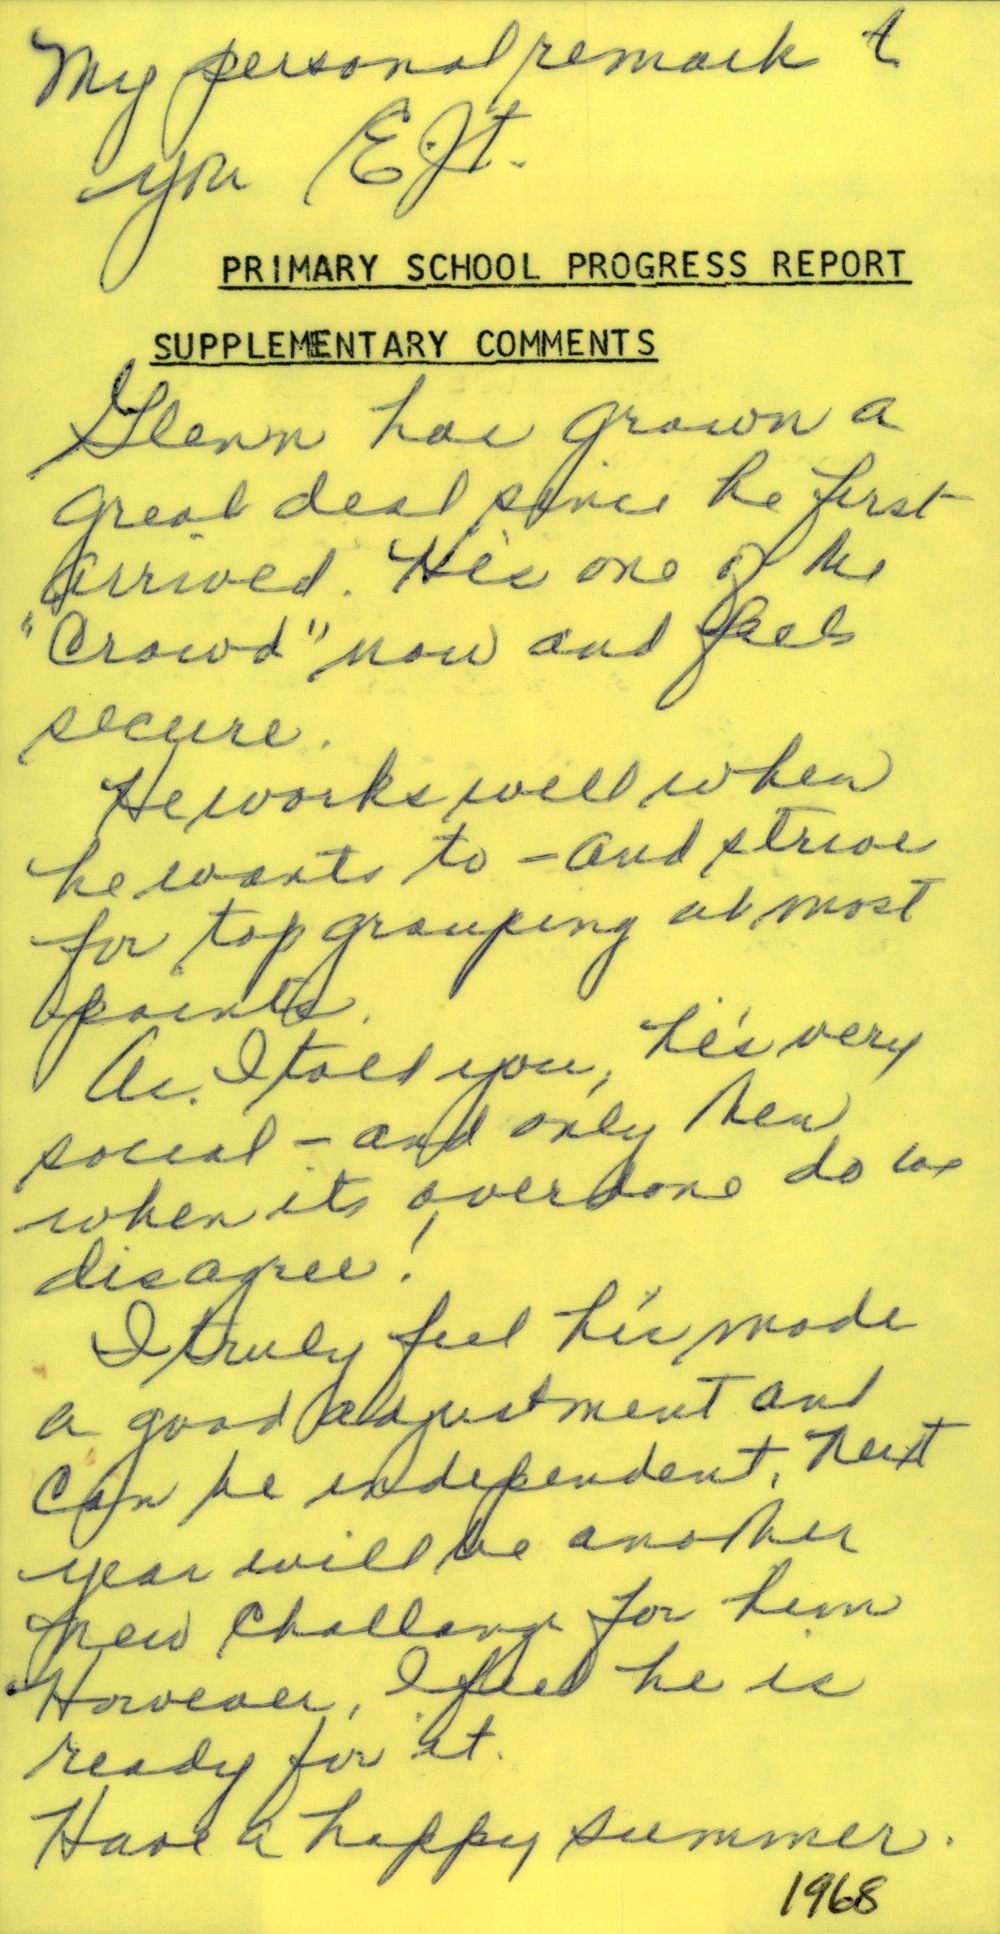 My personal remark to
you E.J.t.
PRIMARY SCHOOL PROGRESS REPORT
SUPPLEMENTARY COMMENTS
Glenn has grown a
great deal since he first
arrived. He's one of the
"Crowd" now and feels
secure.
He works well when
he wants to – and strive
for top grouping at most
points.
As I told you, he's very
social – and only then
when its overdone do we
disagree!
I truly feel he's made
a good adjustment and
can be independent. Next
year will be another
new challange for him
However, I feel he is
ready for it.
Have a happy summer.
1968